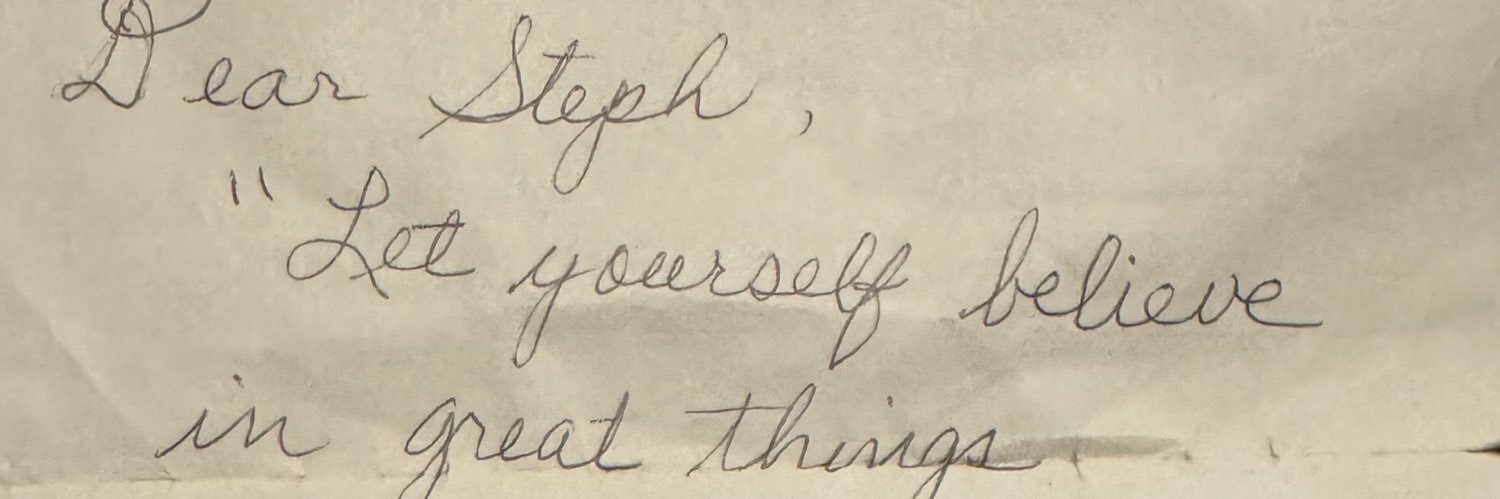 Dear Steph,
"Let yourself believe
in great things